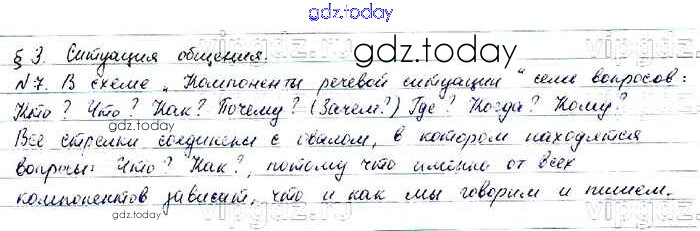 gdz.today
§ 3. Ситуация общения.
gdz.today
№7. В схеме „Компоненты речевой ситуации" семь вопросов:
Кто? Что? Как? Почему? (Зачем?) Где? Когда? Кому?
gdz.today
Все стрелки соединены с овалом, в котором находятся
вопросы: Что? Как?, потому что именно от всех
gdz.today
компонентов зависит, что и как мы говорим и пишем.
gdz.today
vipgdz.ru